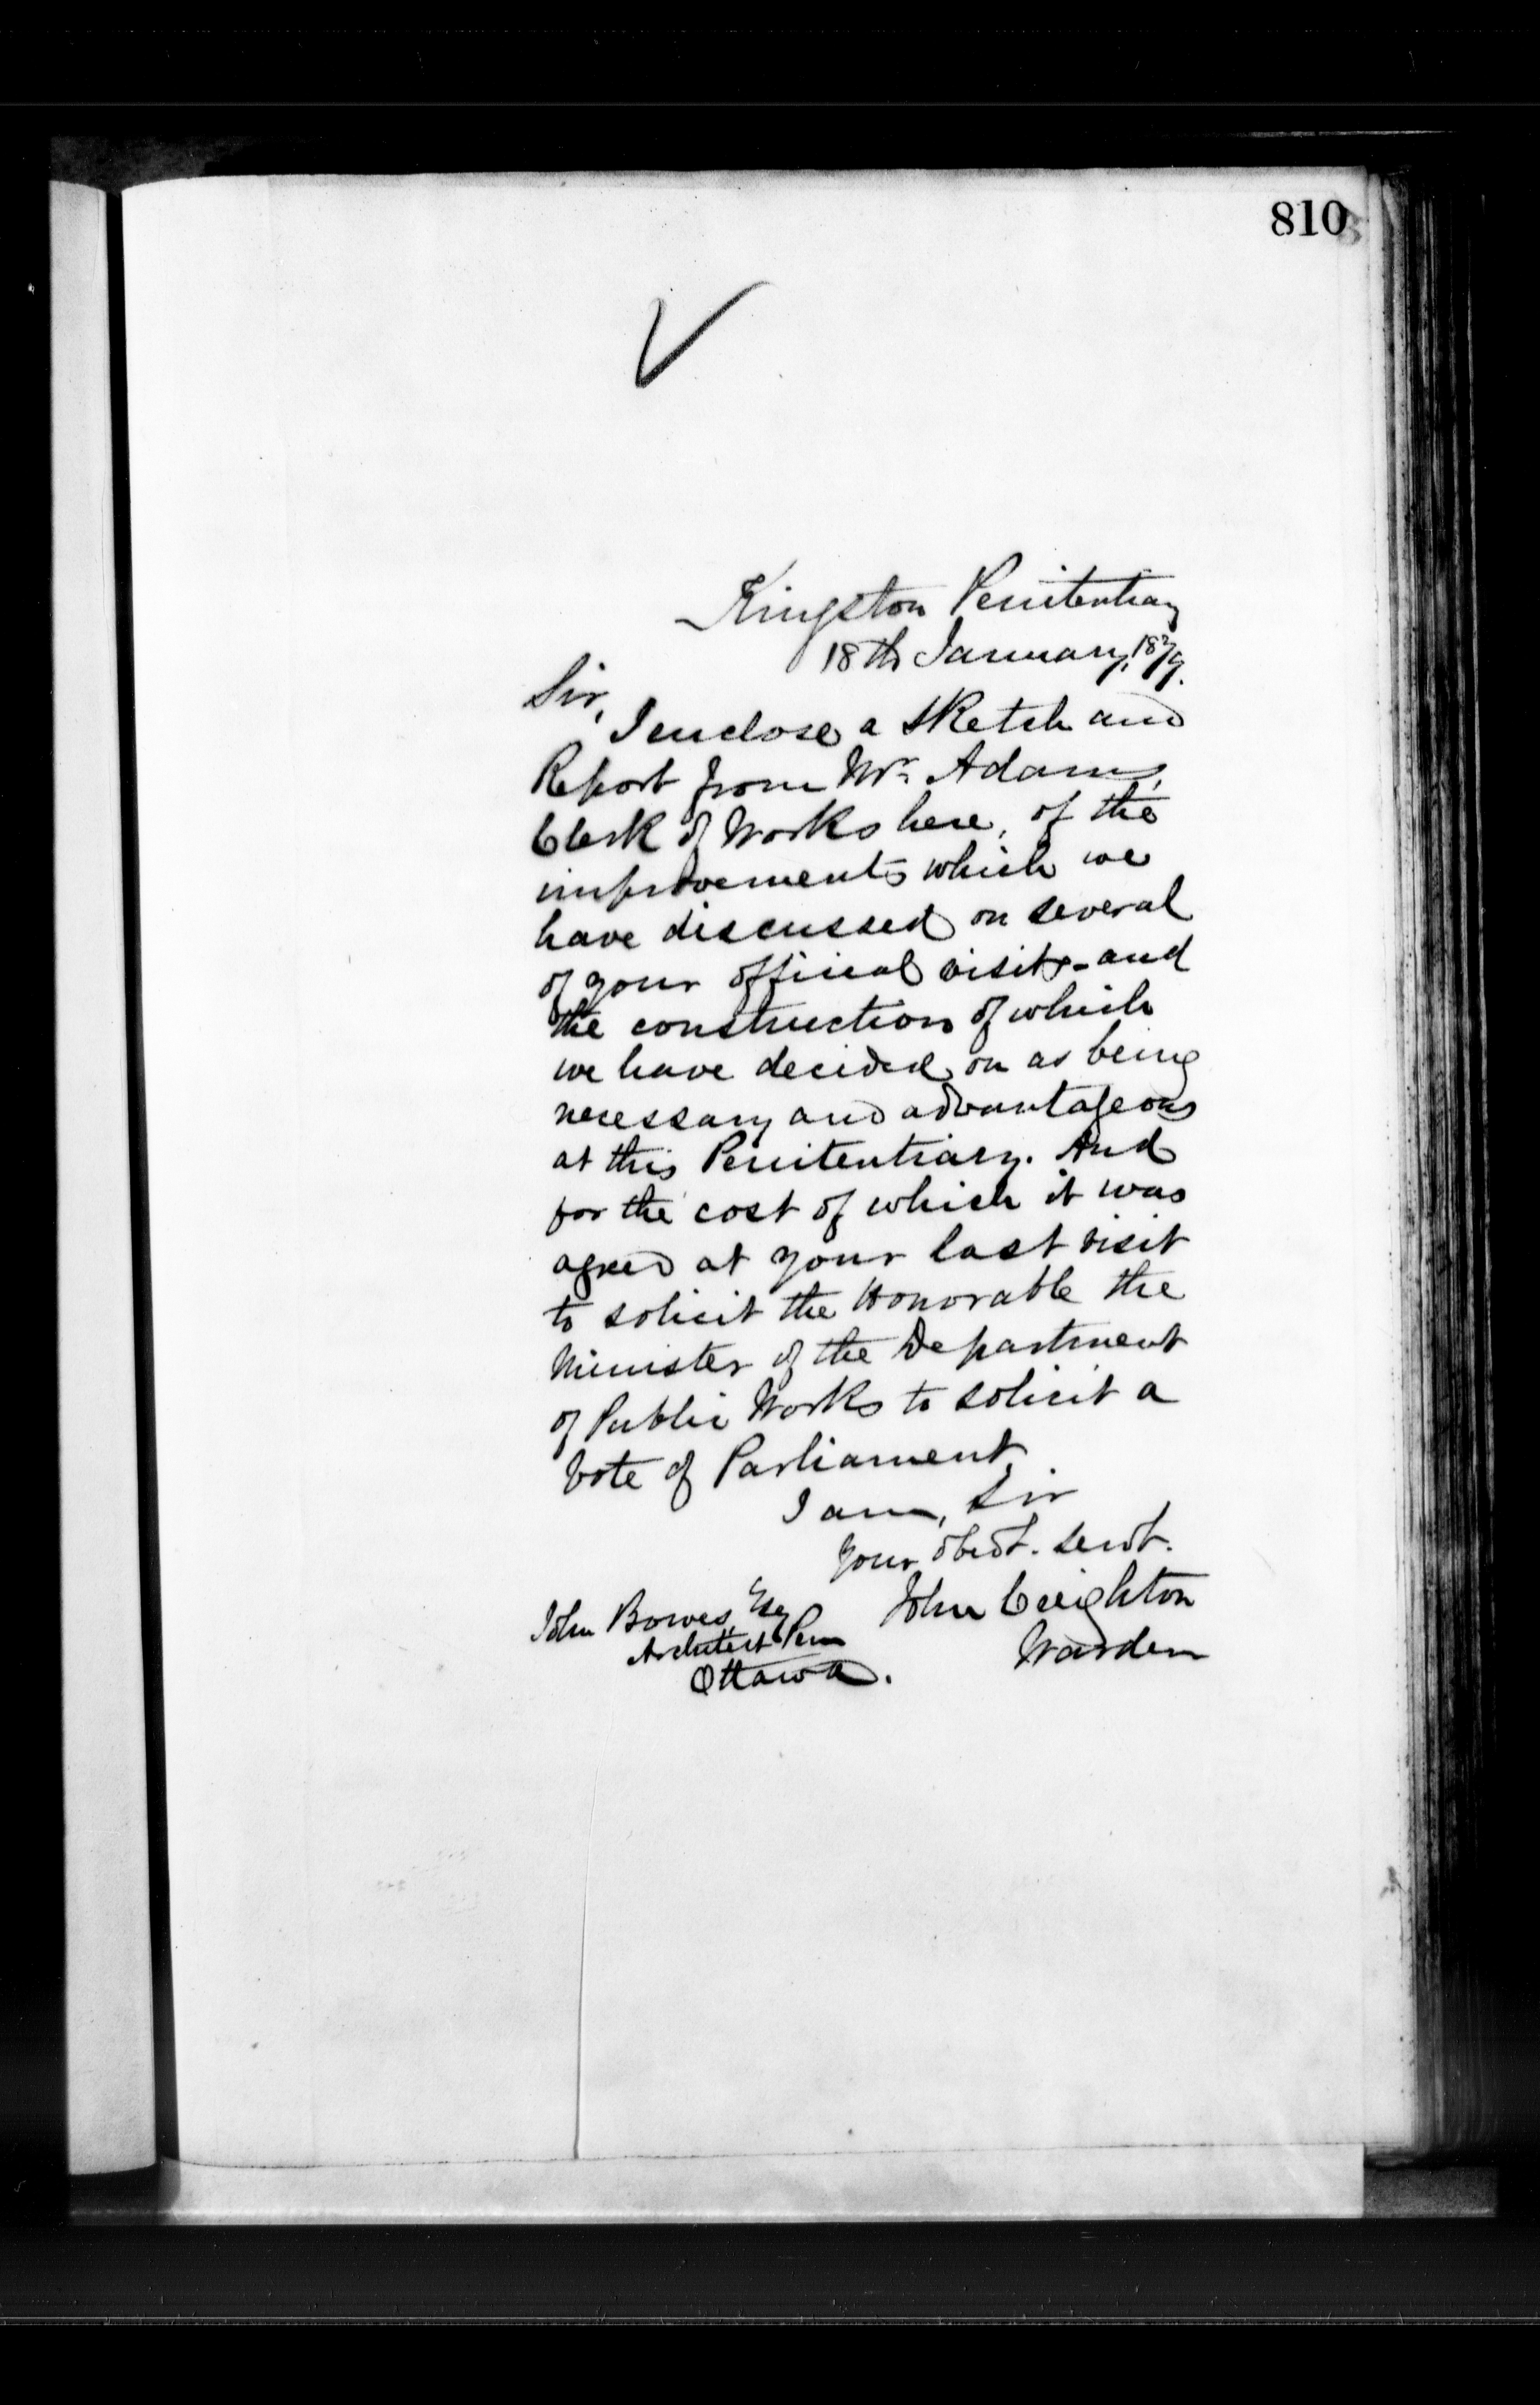 810
Kingston Penitentiary
18th January, 1879.
Sir,
I enclose a sketch and
Report from Mr. Adams,
Clerk of Works here, of the
improvements which we
have discussed on several
of your official visits - and
the construction of which
we have decided on as being
necessary and advantageous
at this Penitentiary. And
for the cost of which it was
agreed at your last visit
to solicit the Honorable the
Minister of the Department
of Public Works to solicit a
Vote of Parliament
I am, Sir
your obedt. servt.
John Creighton
Warden
John Bowes, Esq
Architect Pen
Ottawa.